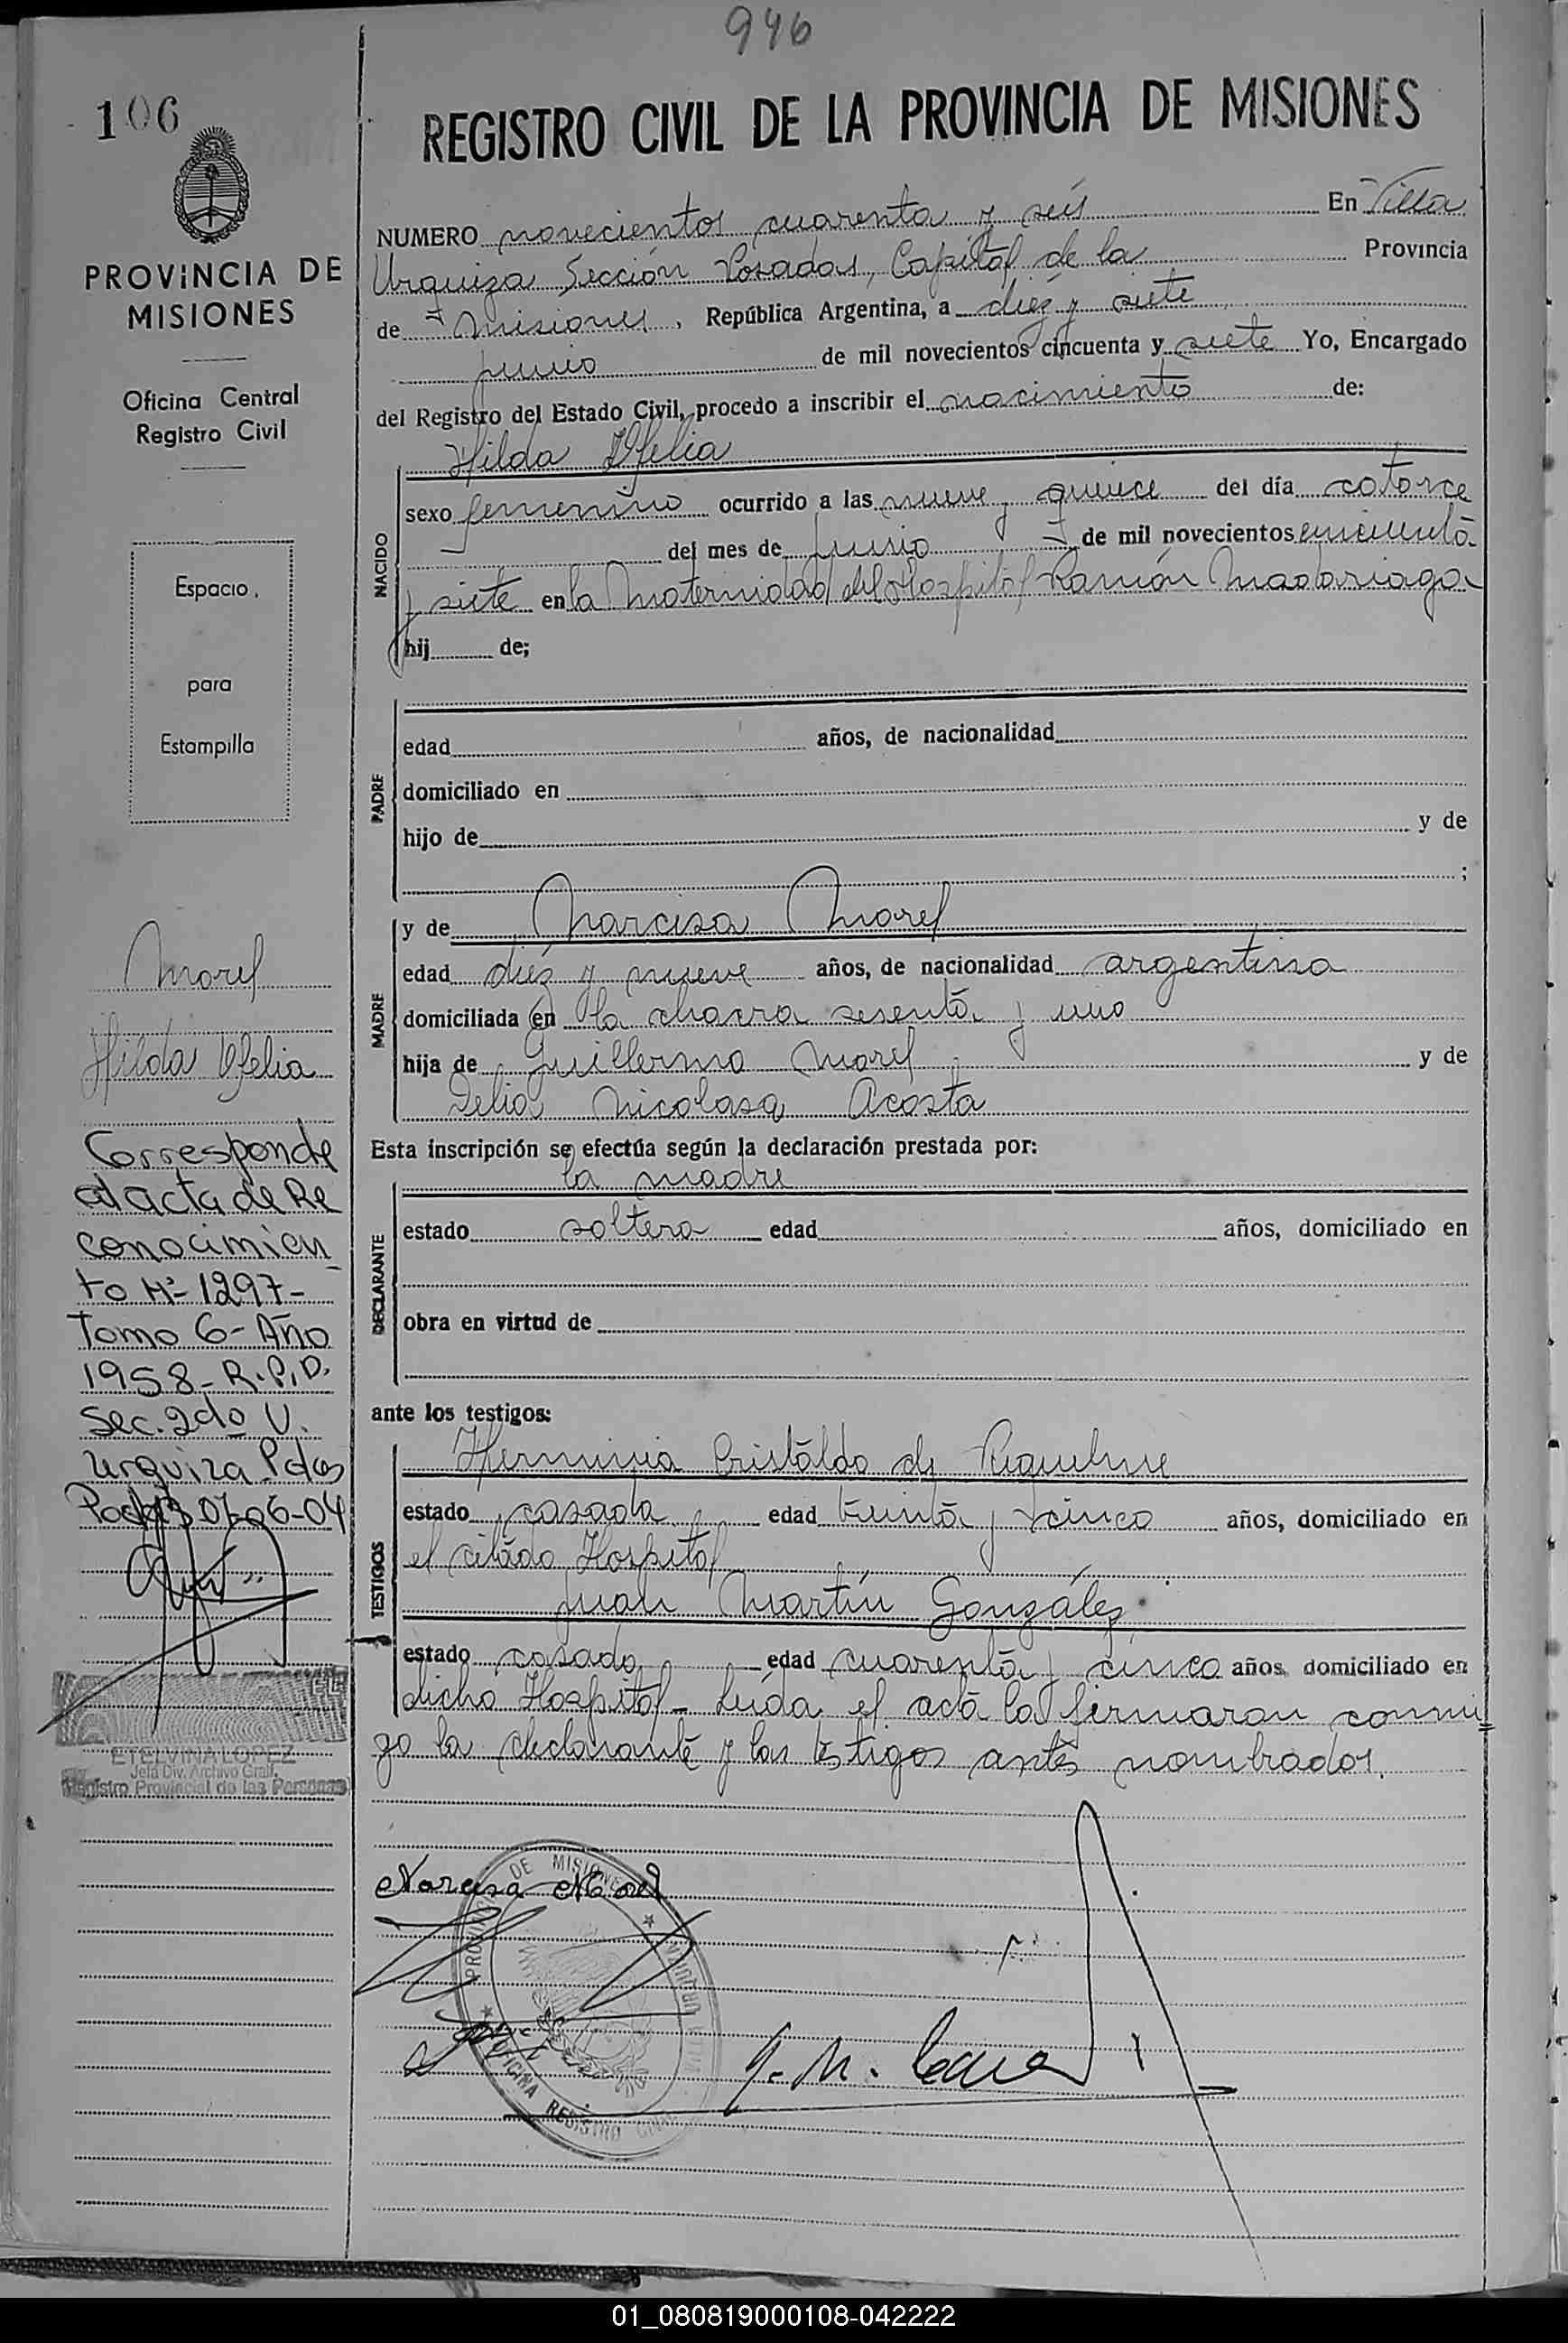 946
106
REGISTRO CIVIL DE LA PROVINCIA DE MISIONES
PROVINCIA DE
MISIONES
Oficina Central
Registro Civil
Espacio
para
Estampilla
Morel
Hilda Ofelia
Corresponde
al acta de Re
conocimien
to Nº 1297-
Tomo 6- Año
1958- R.P.D.
Sec. 2do V.
Urquiza Pdas
ETELVINA LOPEZ
Jefa Div. Archivo Graff.
Registro Provincial de las Personas
NUMERO novecientos cuarenta y seis En Villa
Urquiza Sección Posadas, Capital de la Provincia
de Misiones, República Argentina, a diez y siete
junio de mil novecientos cincuenta y siete Yo, Encargado
del Registro del Estado Civil, procedo a inscribir el nacimiento de:
NACIDO
Hilda Ofelia
sexo femenino ocurrido a las nueve y quince del día catorce
del mes de junio de mil novecientos cincuenta
y siete en la Maternidad del Hospital Ramón Madariaga
hij de;
PADRE
edad años, de nacionalidad
domiciliado en
hijo de y de
;
MADRE
y de Narcisa Morel
edad diez y nueve años, de nacionalidad argentina
domiciliada en la chacra sesenta y uno
hija de Guillermo Morel y de
Delia Nicolasa Acosta
Esta inscripción se efectúa según la declaración prestada por:
DECLARANTE
la madre
estado soltera edad años, domiciliado en
obra en virtud de
ante los testigos:
TESTIGOS
Herminia Cristaldo de Riquelme
estado casada edad treinta y cinco años, domiciliado en
el citado Hospital
Juan Martín Gonzáles
estado casado edad cuarenta y cinco años, domiciliado en
dicho Hospital- Leída el acta la firmaron conmi
go la declarante y los testigos antes nombrados.
Narcisa Morel
PROVINCIA DE MISIONES
OFICINA REGISTRO CIVIL
01_080819000108-042222